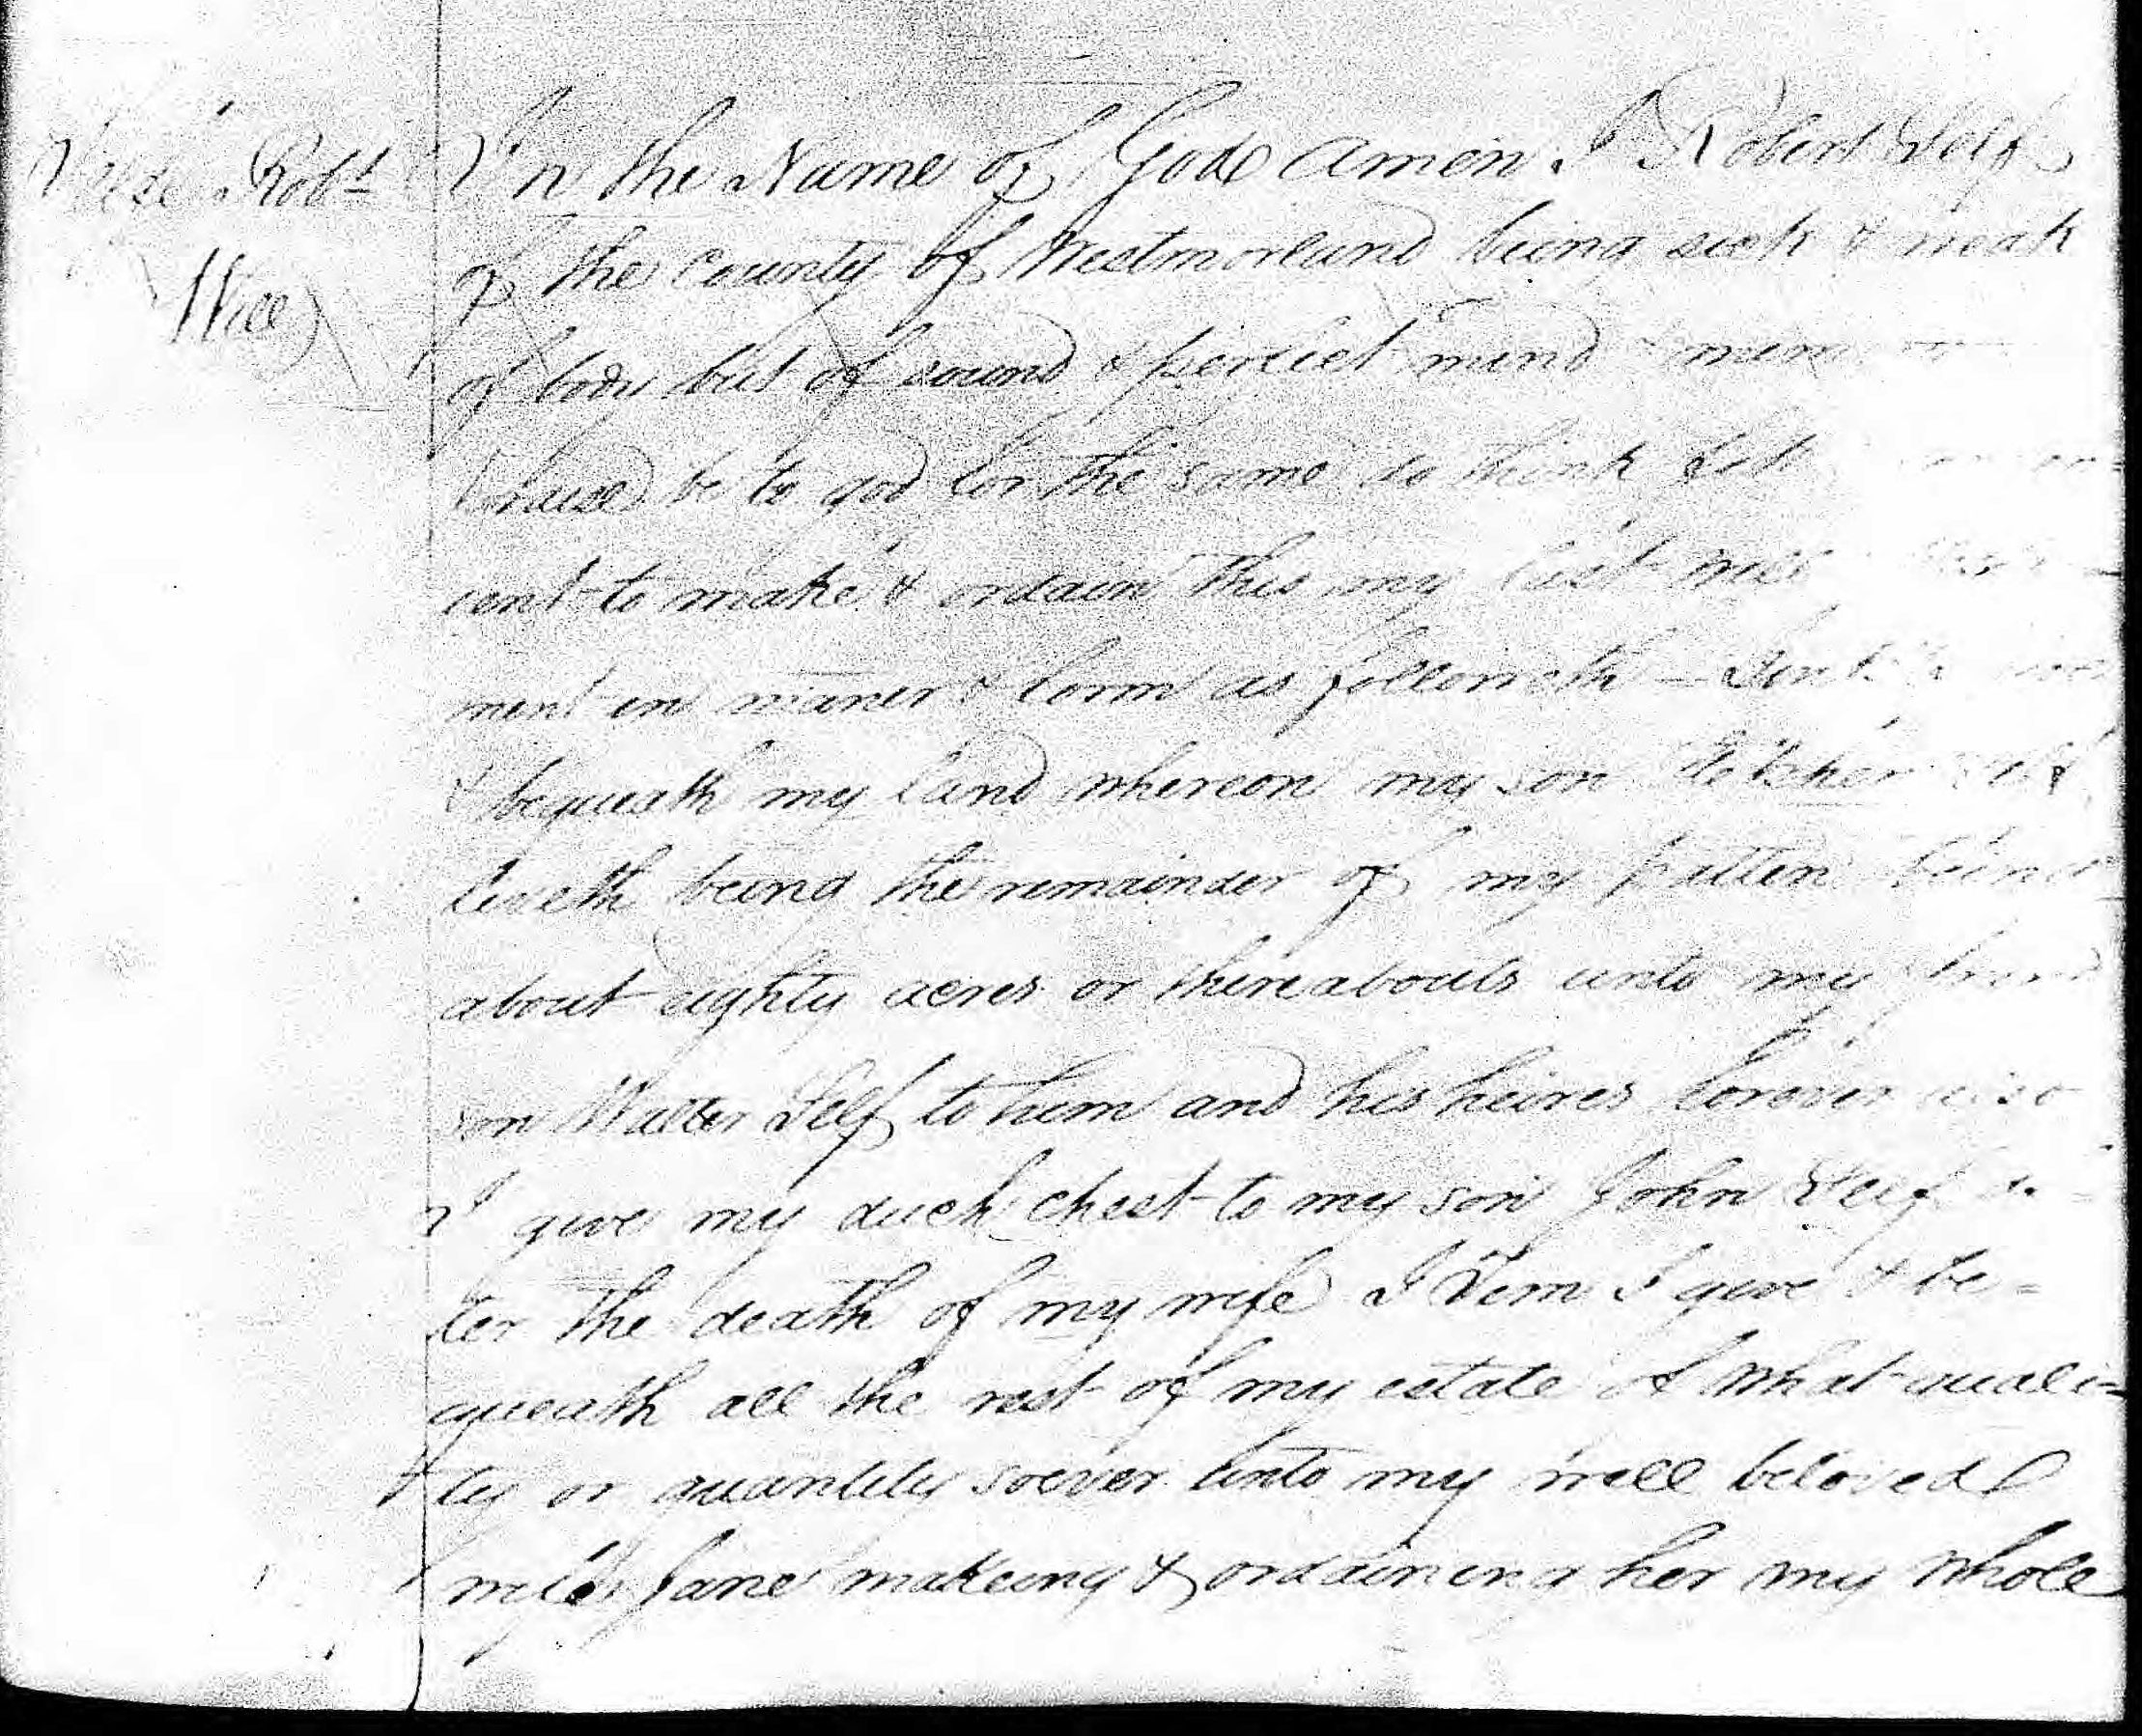 Robt
Will
In the Name of God Amen. I Robert Self
of the County of Westmorland being sick & weak
of body but of sound & perfect mind
Praised be to god for the same do think
cent to make & ordain this my last will
ment in maner & form as followeth
& bequeath my land whereon my son
liveth being the remainder of my patten being
about eighty acres or thereabouts unto my
son Walter Self to him and his heires forever also
I give my duch chest to my son John Self
ter the death of my wife I Tem I give & be=
queath all the rest of my estate of what quali=
ty or quantity soever unto my well beloved
wife Jane makeing & ordaining her my whole